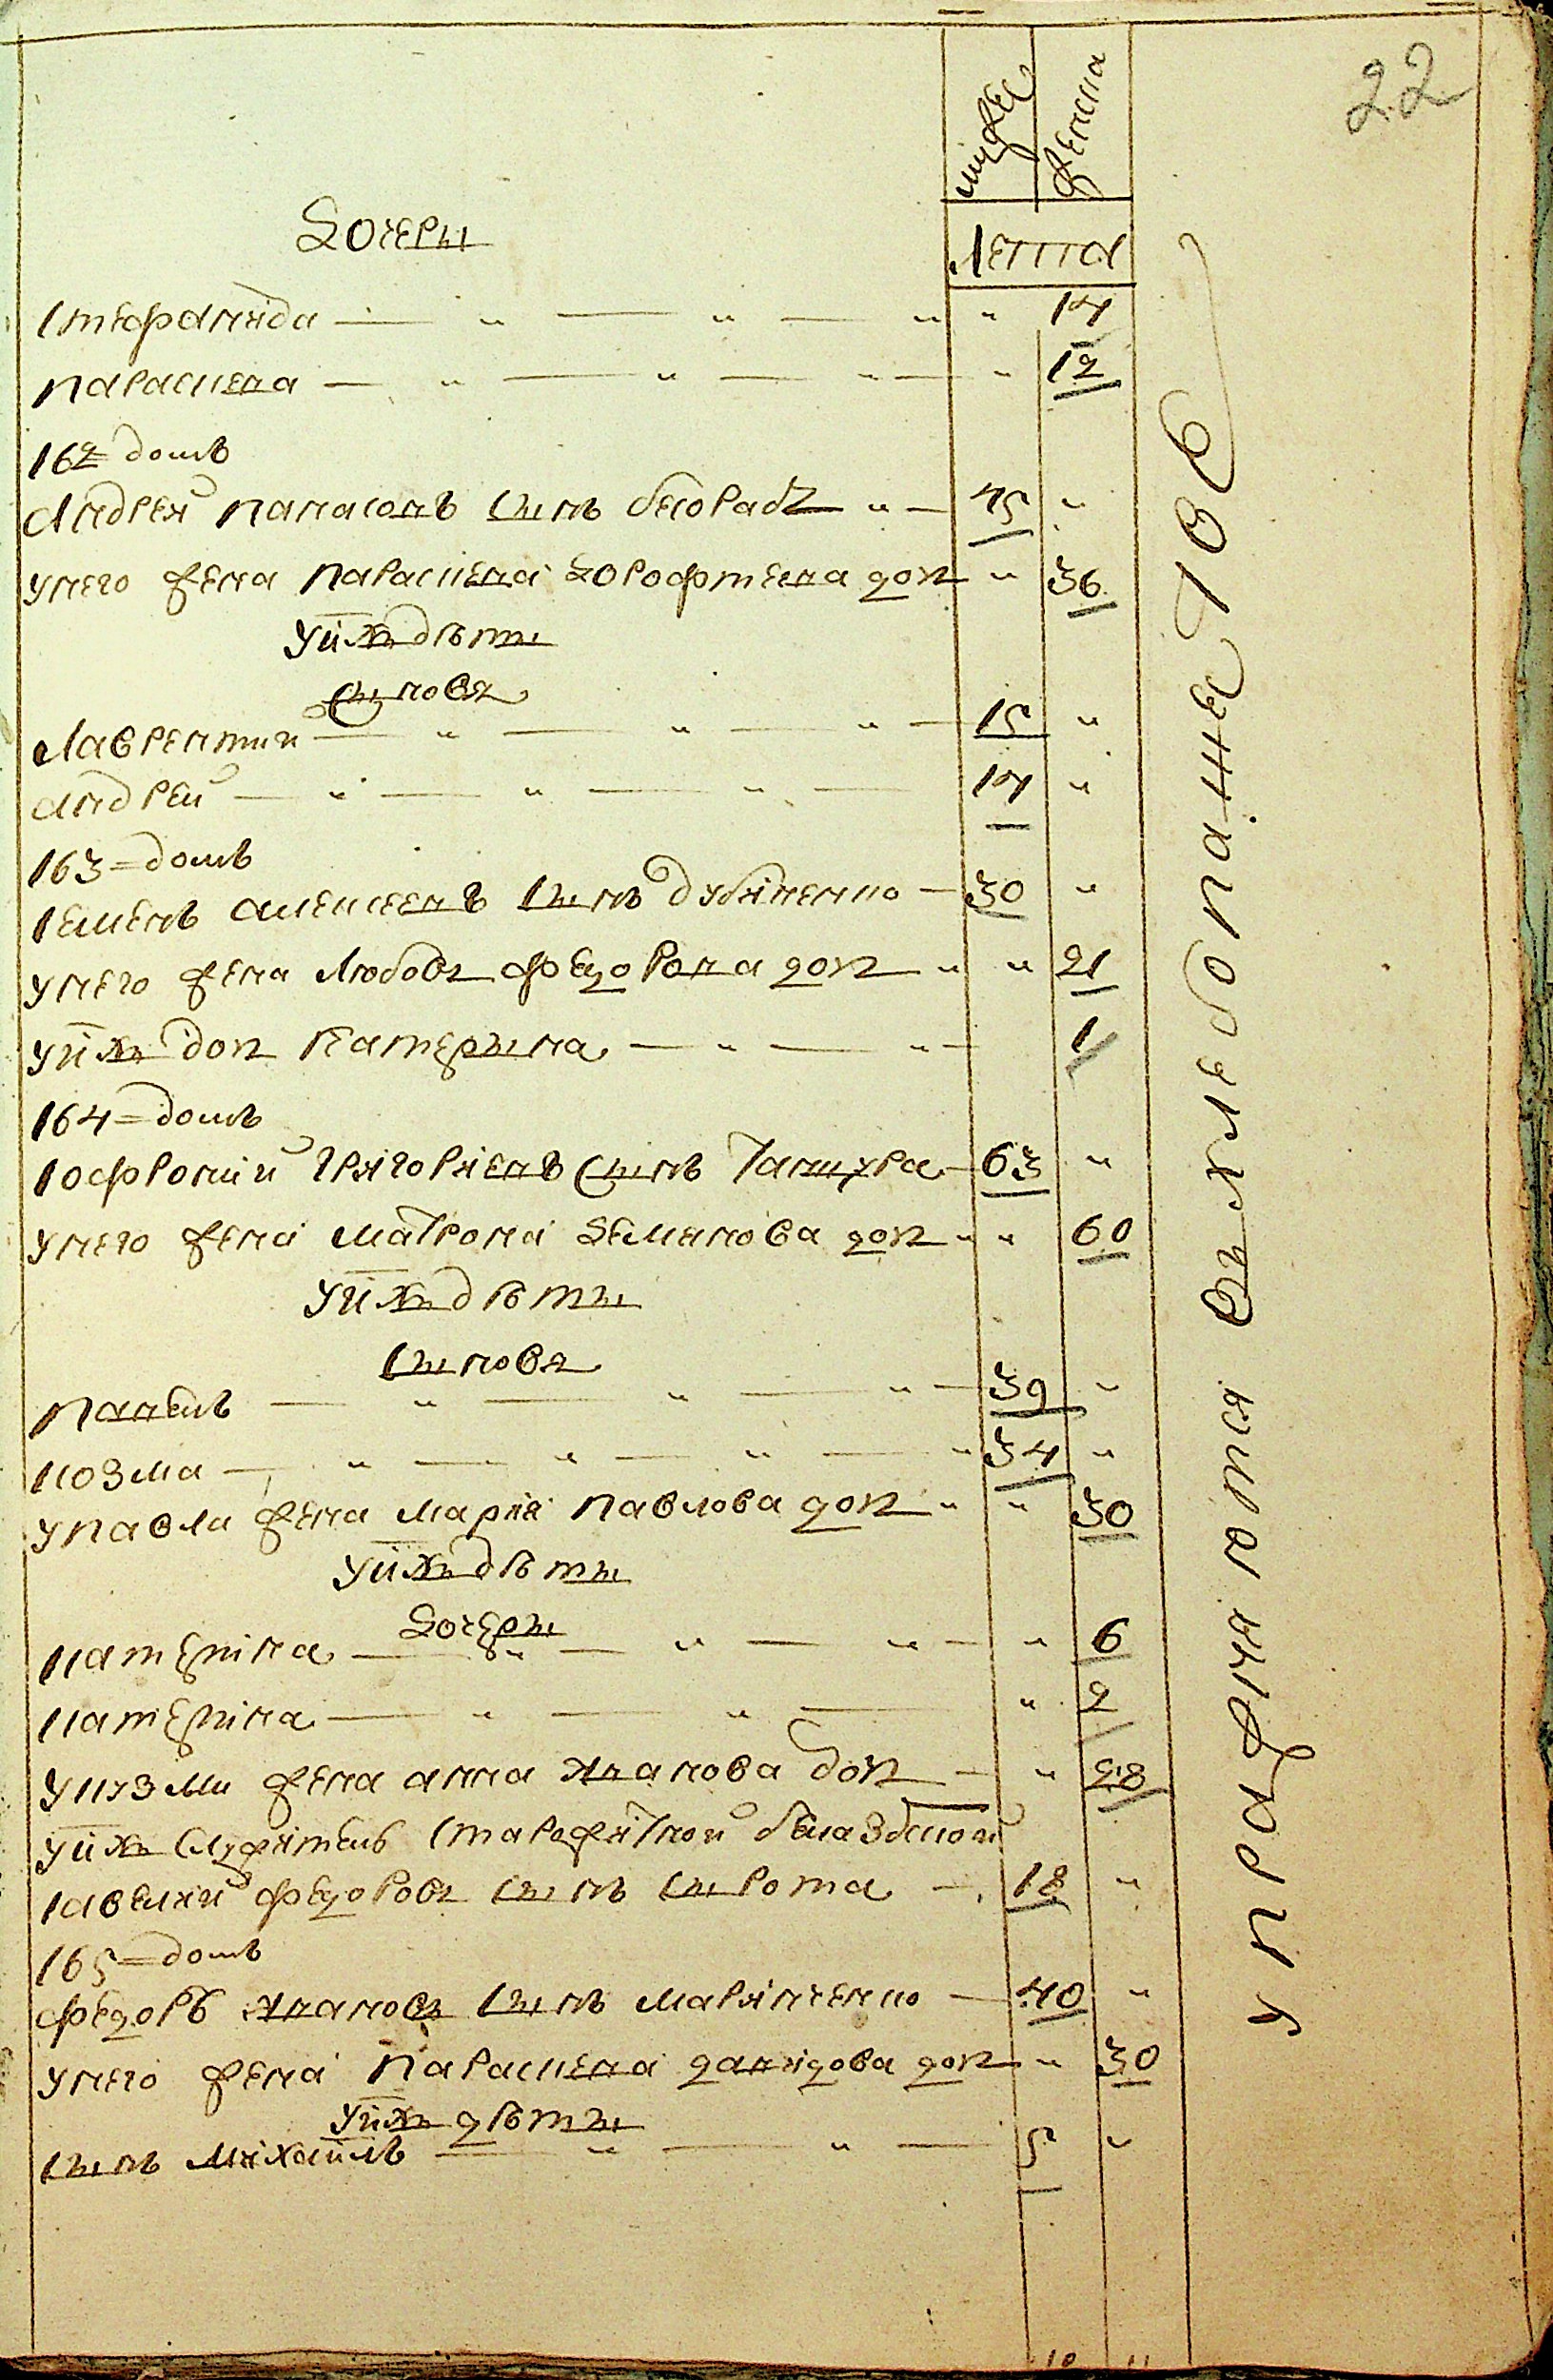 22
мужес
женска
Лѣта
Дочери
Стефанида " " " " 14
параскева " " " " 12
162 домъ
Андрей панасовъ сынъ " 45 "
у него жена параскева дорофѣева доч " 36
у ных дѣты
сыновя
Лаврентии " " " 15 "
андреи " " " 14 "
163 = домъ
семенъ алексеевъ сынъ дубиненко 30 "
у него жена Любовь федорова доч " " 21
у ных доч катерына " " 1
164 = домъ
софроний григориевъ сынъ 63 "
у него жена матрона демянова доч " " 60
у ных дѣты
сыновя
павелъ " " " 39 "
козма " " " " 34 "
у павла жена мария павлова доч " " 30
у ных дѣты
дочеры
катерина " " " " 6
катерина " " " 2
у козми жена анна иванова доч " 28
у ных служитель
савелий федоровъ сынъ сырота 18 "
165 = домъ
федоръ ивановъ сынъ маринченко 40 "
у него жена параскева давидова доч " 30
у ных дѣты
сынъ михаилъ " " 5 "
упражняются въ хлебопашество